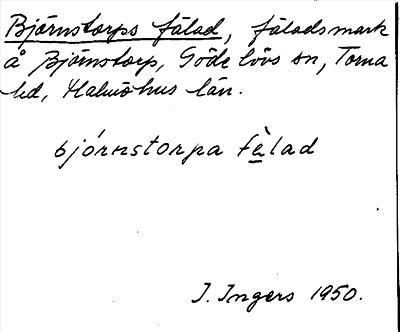 Björnstorps fälad, fäladsmark
å Björnstorp, Gödelövs sn, Torna
hd, Malmöhus län.
bjórnstorpa fè̱lad
I. Ingers 1950.